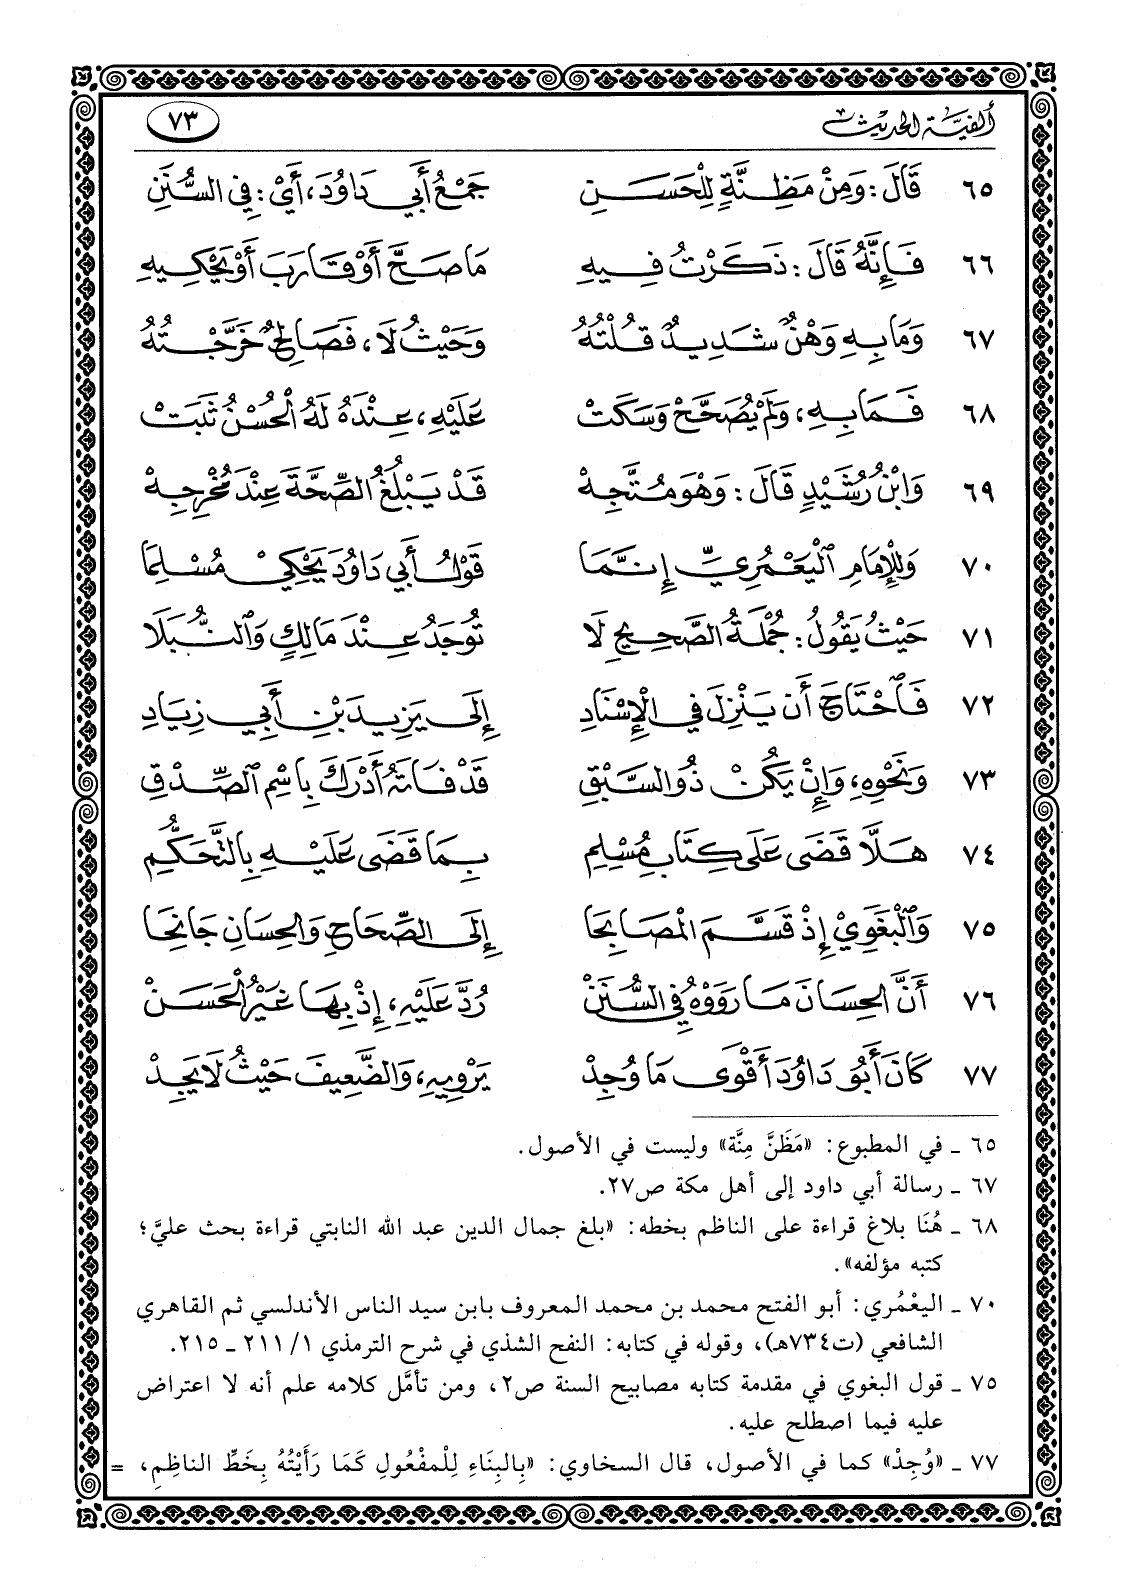 ألفية الحديث ٧٣
٦٥ قَالَ: وَمِنْ مَظِنَّةٍ لِلْحَسَنِ جَمْعُ أَبِي دَاوُدَ، أَيْ: فِي السُّنَنِ
٦٦ فَإِنَّهُ قَالَ: ذَكَرْتُ فِيهِ مَا صَحَّ أَوْ قَارَبَ أَوْ يَحْكِيهِ
٦٧ وَمَا بِهِ وَهْنٌ شَدِيدٌ قُلْتُهُ وَحَيْثُ لَا، فَصَالِحٌ خَرَّجْتُهُ
٦٨ فَمَا بِهِ، وَلَمْ يُصَحَّحْ وَسَكَتْ عَلَيْهِ، عِنْدَهُ لَهُ الْحُسْنُ ثَبَتْ
٦٩ وَابْنُ رُشَيْدٍ قَالَ: وَهْوَ مُتَّجِهْ قَدْ يَبْلُغُ الصِّحَّةَ عِنْدَ مُخْرِجِهْ
٧٠ وَلِلْإِمَامِ ٱلْيَعْمُرِيِّ إِنَّمَا قَوْلُ أَبِي دَاوُدَ يَحْكِيْ مُسْلِمَا
٧١ حَيْثُ يَقُولُ: جُمْلَةُ الصَّحِيحِ لَا تُوجَدُ عِنْدَ مَالِكٍ وَٱلنُّبَلَا
٧٢ فَٱحْتَاجَ أَن يَنْزِلَ فِي الْإِسْنَادِ إِلَى يَزِيدَ بْنِ أَبِي زِيَادِ
٧٣ وَنَحْوِهِ، وَإِنْ يَكُنْ ذُو السَّبْقِ قَدْ فَاتَهُ أَدْرَكَ بِاسْمِ ٱلصِّدْقِ
٧٤ هَلَّا قَضَى عَلَى كِتَابِ مُسْلِمِ بِمَا قَضَى عَلَيْهِ بِالتَّحَكُّمِ
٧٥ وَٱلْبَغَوِيْ إِذْ قَسَّمَ الْمَصَابِحَا إِلَى الصِّحَاحِ وَالْحِسَانِ جَانِحَا
٧٦ أَنَّ الْحِسَانَ مَا رَوَوْهُ فِي السُّنَنْ رُدَّ عَلَيْهِ، إِذْ بِهَا غَيْرُ الْحَسَنْ
٧٧ كَانَ أَبُو دَاوُدَ أَقْوَى مَا وُجِدْ يَرْوِيهِ، وَالضَّعِيفَ حَيْثُ لَا يَجِدْ
٦٥ ـ في المطبوع: «مَظَنَّ مِنَّة» وليست في الأصول.
٦٧ ـ رسالة أبي داود إلى أهل مكة ص٢٧.
٦٨ ـ هُنَا بلاغ قراءة على الناظم بخطه: «بلغ جمال الدين عبد الله النابتي قراءة بحث عليَّ؛
كتبه مؤلفه».
٧٠ ـ اليعْمُري: أبو الفتح محمد بن محمد المعروف بابن سيد الناس الأندلسي ثم القاهري
الشافعي (ت٧٣٤هـ)، وقوله في كتابه: النفح الشذي في شرح الترمذي ١/ ٢١١ ـ ٢١٥.
٧٥ ـ قول البغوي في مقدمة كتابه مصابيح السنة ص٢، ومن تأمَّل كلامه علم أنه لا اعتراض
عليه فيما اصطلح عليه.
٧٧ ـ «وُجِدْ» كما في الأصول، قال السخاوي: «بِالبِنَاءِ لِلْمفْعُولِ كَمَا رَأَيْتُهُ بِخَطِّ الناظِمِ، =